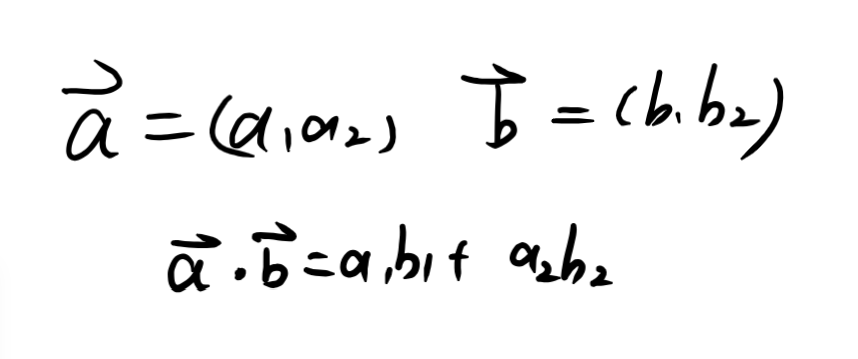 a⃗ = (a₁a₂) b⃗ = (b₁b₂)
a⃗ · b⃗ = a₁b₁ + a₂b₂